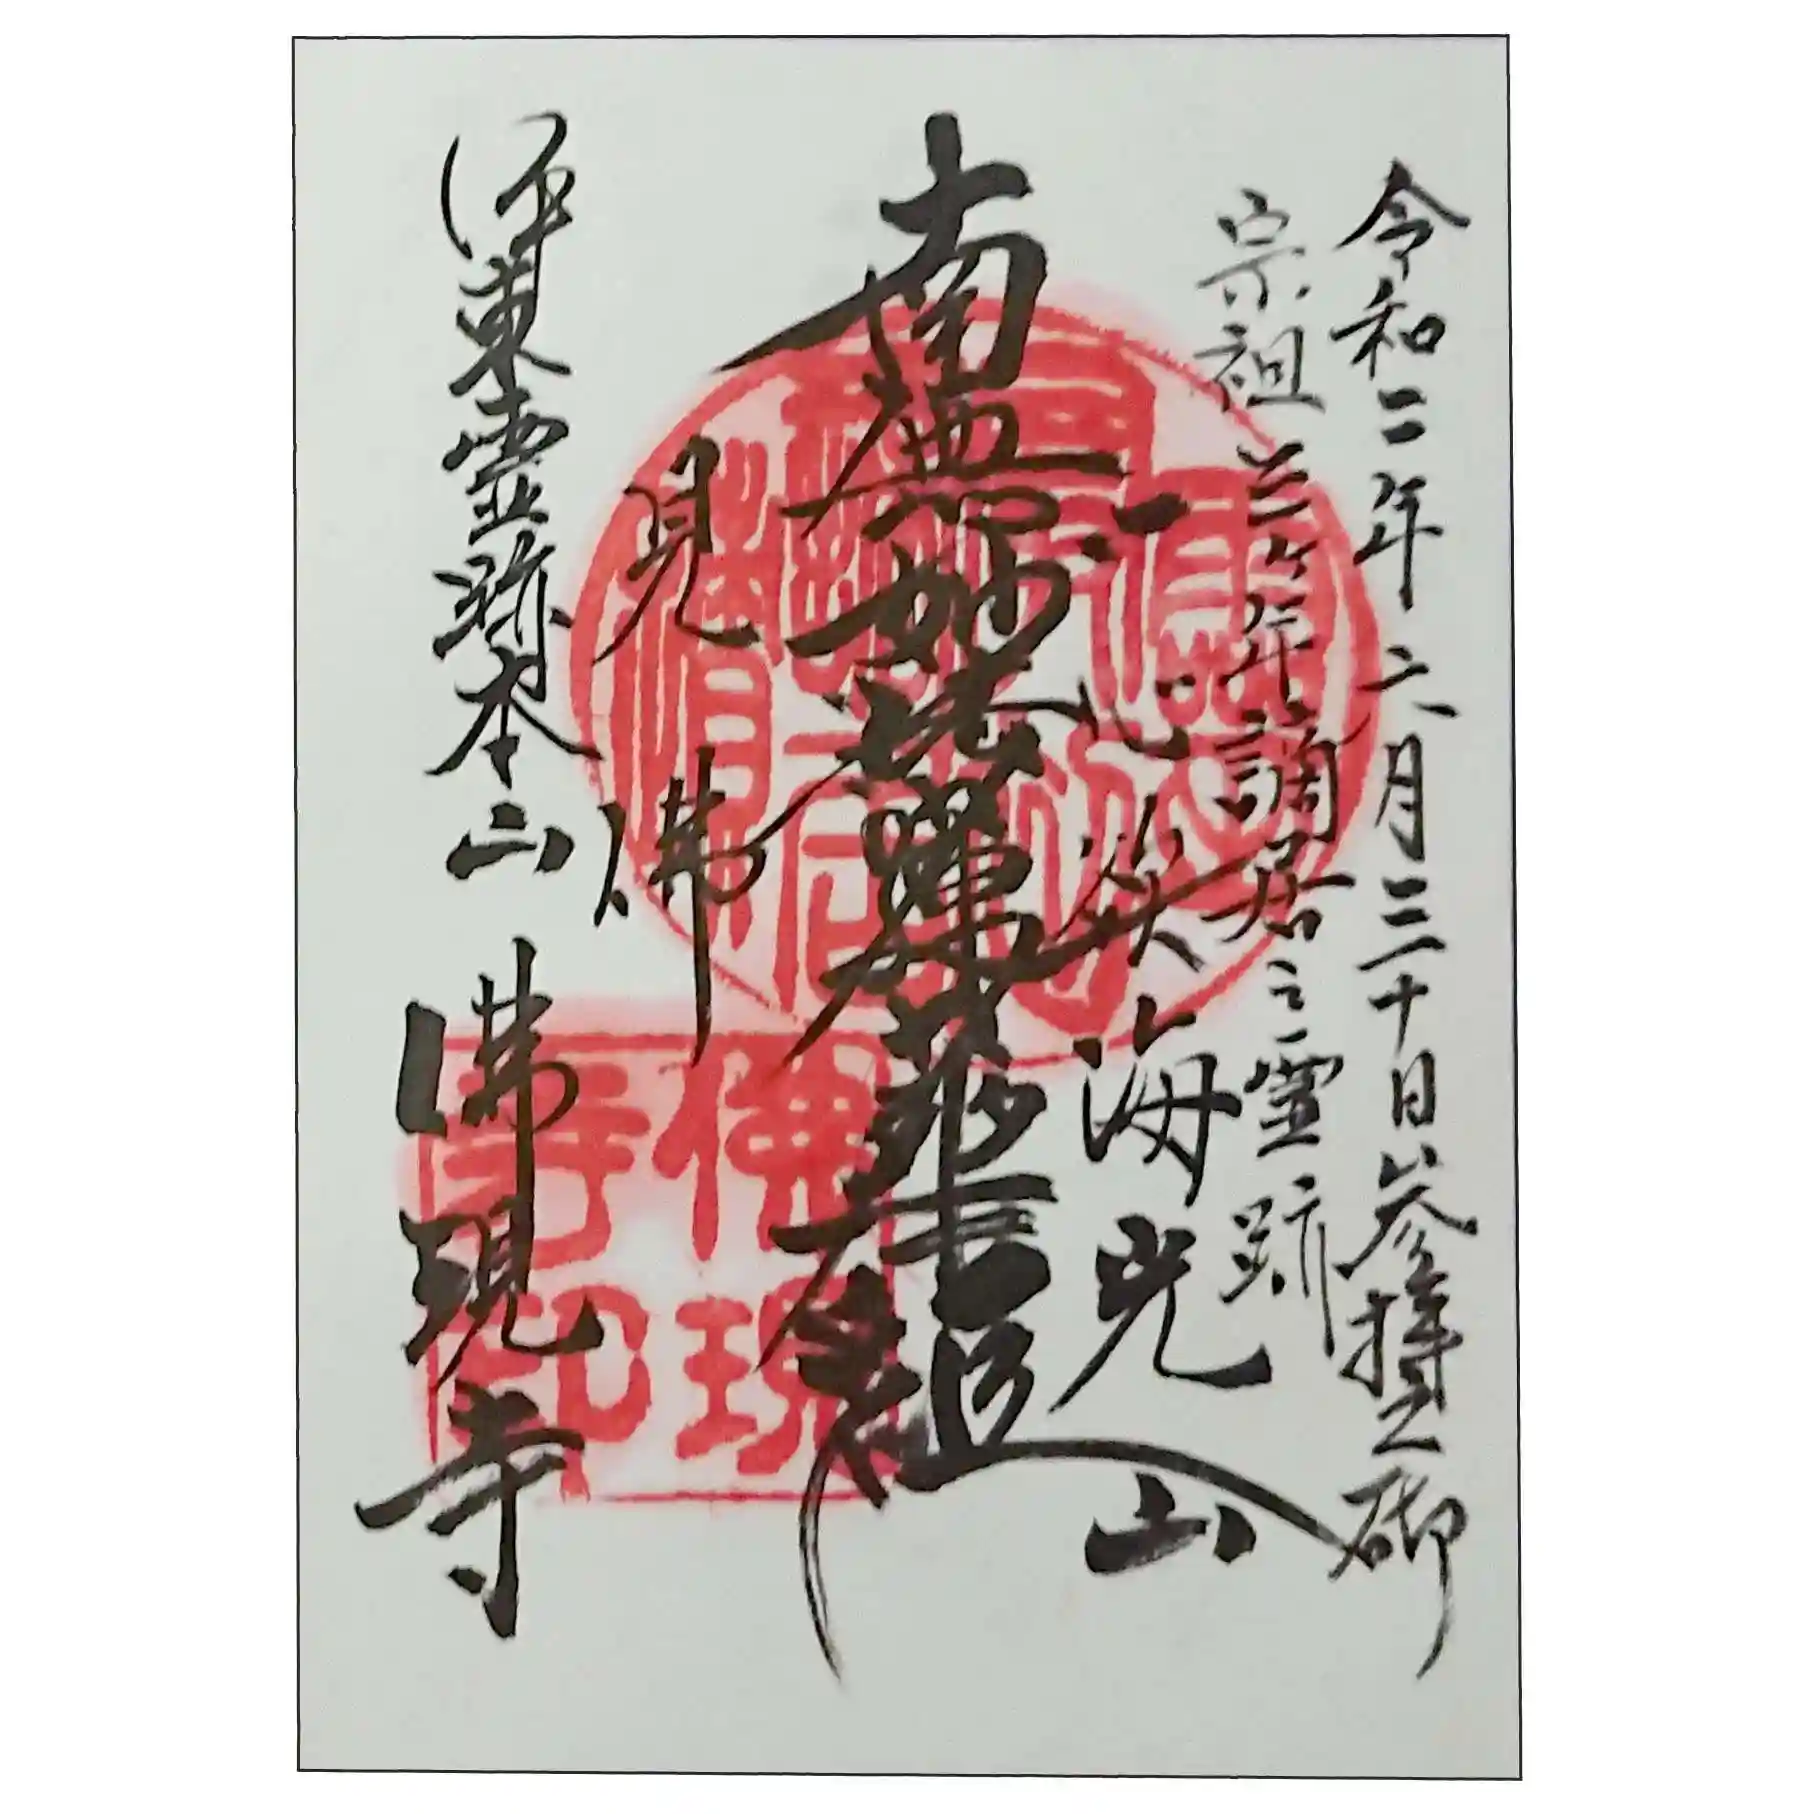 令和二年六月三十日参拝之砌
宗祖三ヶ年謫居之霊跡
一心欲 海光山
南無妙法蓮華経
見佛
伊東霊跡本山 佛現寺
佛現寺印